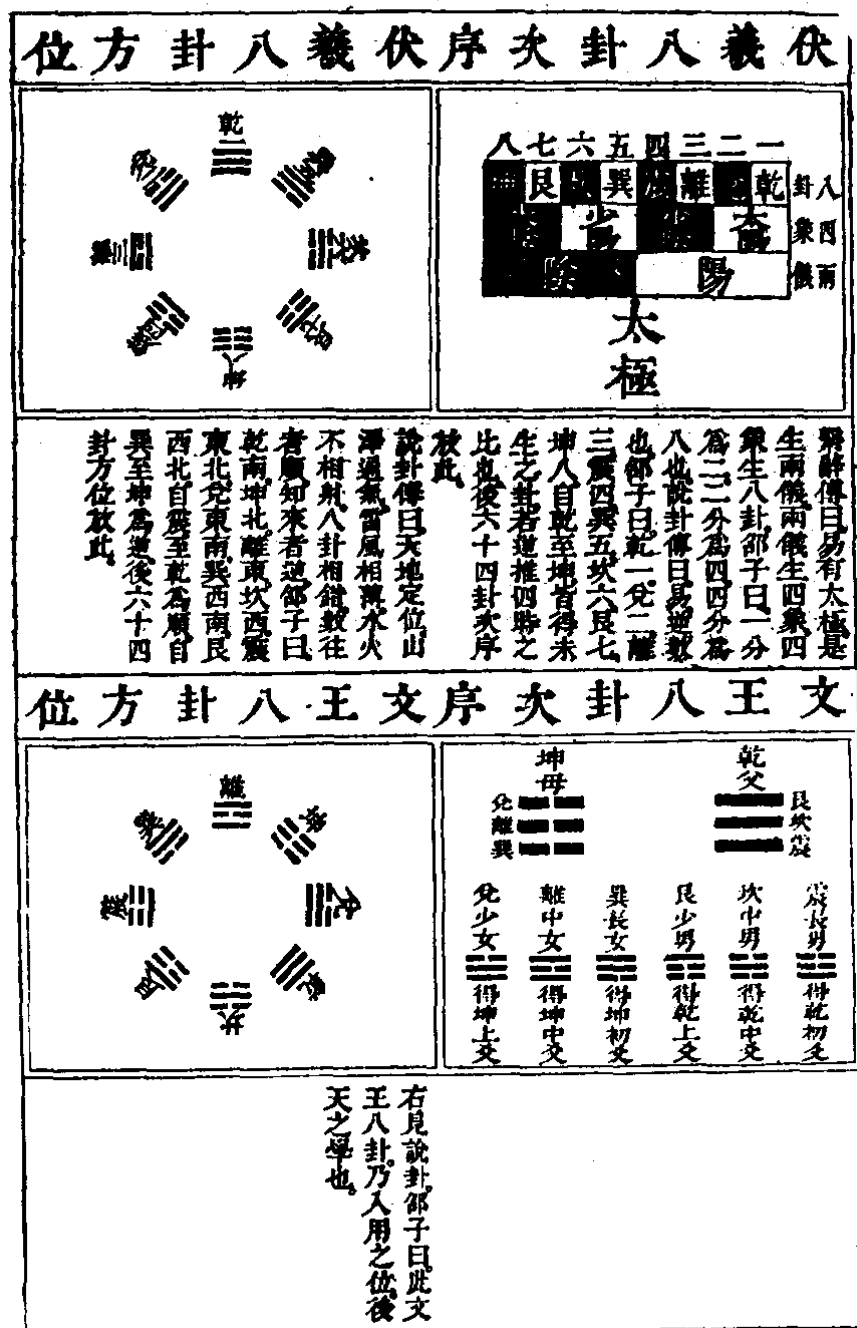 伏羲八卦次序
八卦
四象
兩儀
一二三四五六七八
乾離巽艮
太陽
少
陽陰
太極
伏羲八卦方位
乾一
坎六
艮七
坤八
離三
繫辭傳曰易有太極是
生兩儀兩儀生四象四
象生八卦邵子曰一分
爲二二分爲四四分爲
八也說卦傳曰易逆數
也邵子曰乾一兌二離
三震四巽五坎六艮七
坤八自乾至坤皆得未
生之卦若逆推四時之
比也後六十四卦次序
放此。
說卦傳曰天地定位山
澤通氣雷風相薄水火
不相射八卦相錯數往
者順知來者逆邵子曰
乾南坤北離東坎西震
東北兌東南巽西南艮
西北自震至乾爲順自
巽至坤爲逆後六十四
卦方位放此。
文王八卦次序
乾父
艮坎震
坤母
兌離巽
震長男
得乾初爻
坎中男
得乾中爻
艮少男
得乾上爻
巽長女
得坤初爻
離中女
得坤中爻
兌少女
得坤上爻
文王八卦方位
離
坤
兌
乾
坎
艮
震
巽
右見說卦。邵子曰。此文
王八卦。乃入用之位。後
天之學也。